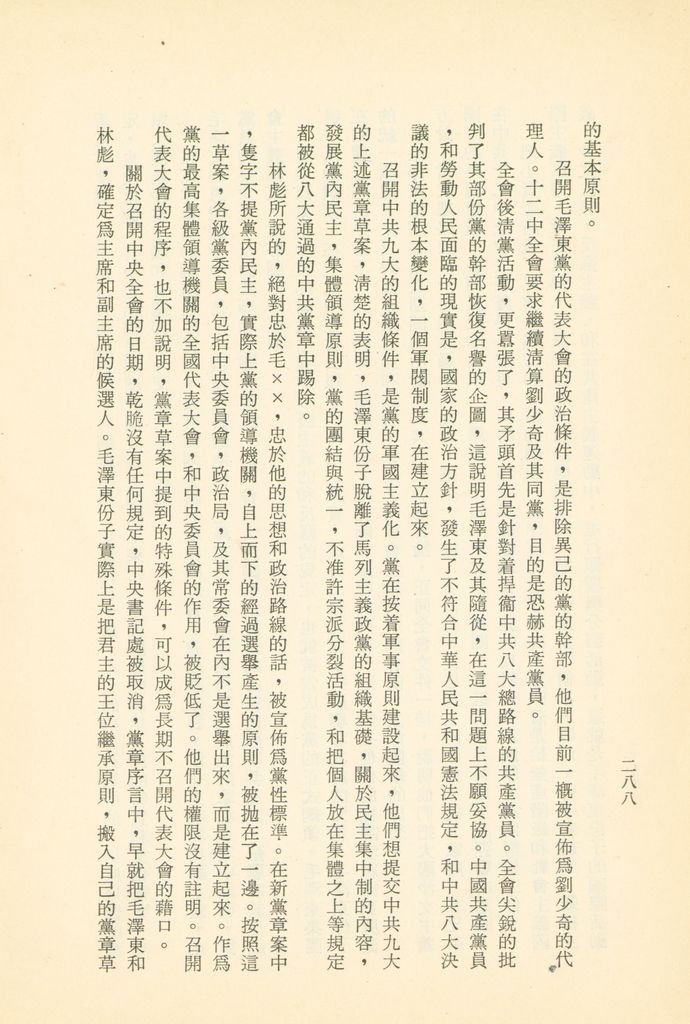 二八八
的基本原則。
召開毛澤東黨的代表大會的政治條件，是排除異己的黨的幹部，他們目前一概被宣佈爲劉少奇的代
理人。十二中全會要求繼續淸算劉少奇及其同黨，目的是恐赫共產黨員。
全會後淸黨活動，更囂張了，其矛頭首先是針對着捍衞中共八大總路線的共產黨員。全會尖銳的批
判了其部份黨的幹部恢復名譽的企圖，這說明毛澤東及其隨從，在這一問題上不願妥協。中國共產黨員
，和勞動人民面臨的現實是，國家的政治方針，發生了不符合中華人民共和國憲法規定，和中共八大決
議的非法的根本變化，一個軍閥制度，在建立起來。
召開中共九大的組織條件，是黨的軍國主義化。黨在按着軍事原則建設起來，他們想提交中共九大
的上述黨章草案，淸楚的表明，毛澤東份子脫離了馬列主義政黨的組織基礎，關於民主集中制的內容，
發展黨內民主，集體領導原則，黨的團結與統一，不准許宗派分裂活動，和把個人放在集體之上等規定
都被從八大通過的中共黨章中踢除。
林彪所說的，絕對忠於毛××，忠於他的思想和政治路線的話，被宣佈爲黨性標準。在新黨章案中
，隻字不提黨內民主，實際上黨的領導機關，自上而下的經過選舉產生的原則，被抛在了一邊。按照這
一草案，各級黨委員，包括中央委員會，政治局，及其常委會在內不是選舉出來，而是建立起來。作爲
黨的最高集體領導機關的全國代表大會，和中央委員會的作用，被貶低了。他們的權限沒有註明。召開
代表大會的程序，也不加說明，黨章草案中提到的特殊條件，可以成爲長期不召開代表大會的藉口。
關於召開中央全會的日期，乾脆沒有任何規定，中央書記處被取消，黨章序言中，早就把毛澤東和
林彪，確定爲主席和副主席的候選人。毛澤東份子實際上是把君主的王位繼承原則，搬入自己的黨章草